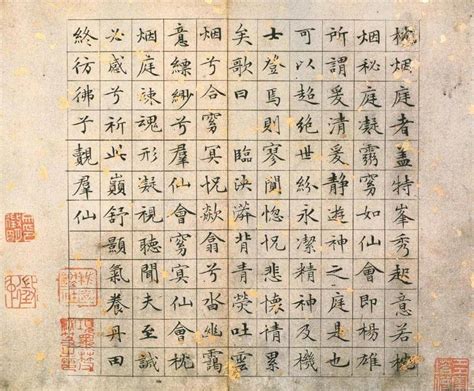 枕烟庭者盖特峯秀起意若枕
烟秘庭凝靄窅如仙會即楊雄
所謂爰清爰靜遊神之庭是也
可以超絕世紛永潔精神及機
士登焉則寥闃惚怳悲懷情累
矣歌曰 臨泱漭背青熒吐雲
烟兮合窅冥怳欻翕兮沓幽靄
意縹緲兮羣仙會窅冥仙會枕
烟庭竦魂形凝視聽聞夫至誠
必感兮祈此巔舒顥氣養丹田
終彷彿兮覿羣仙